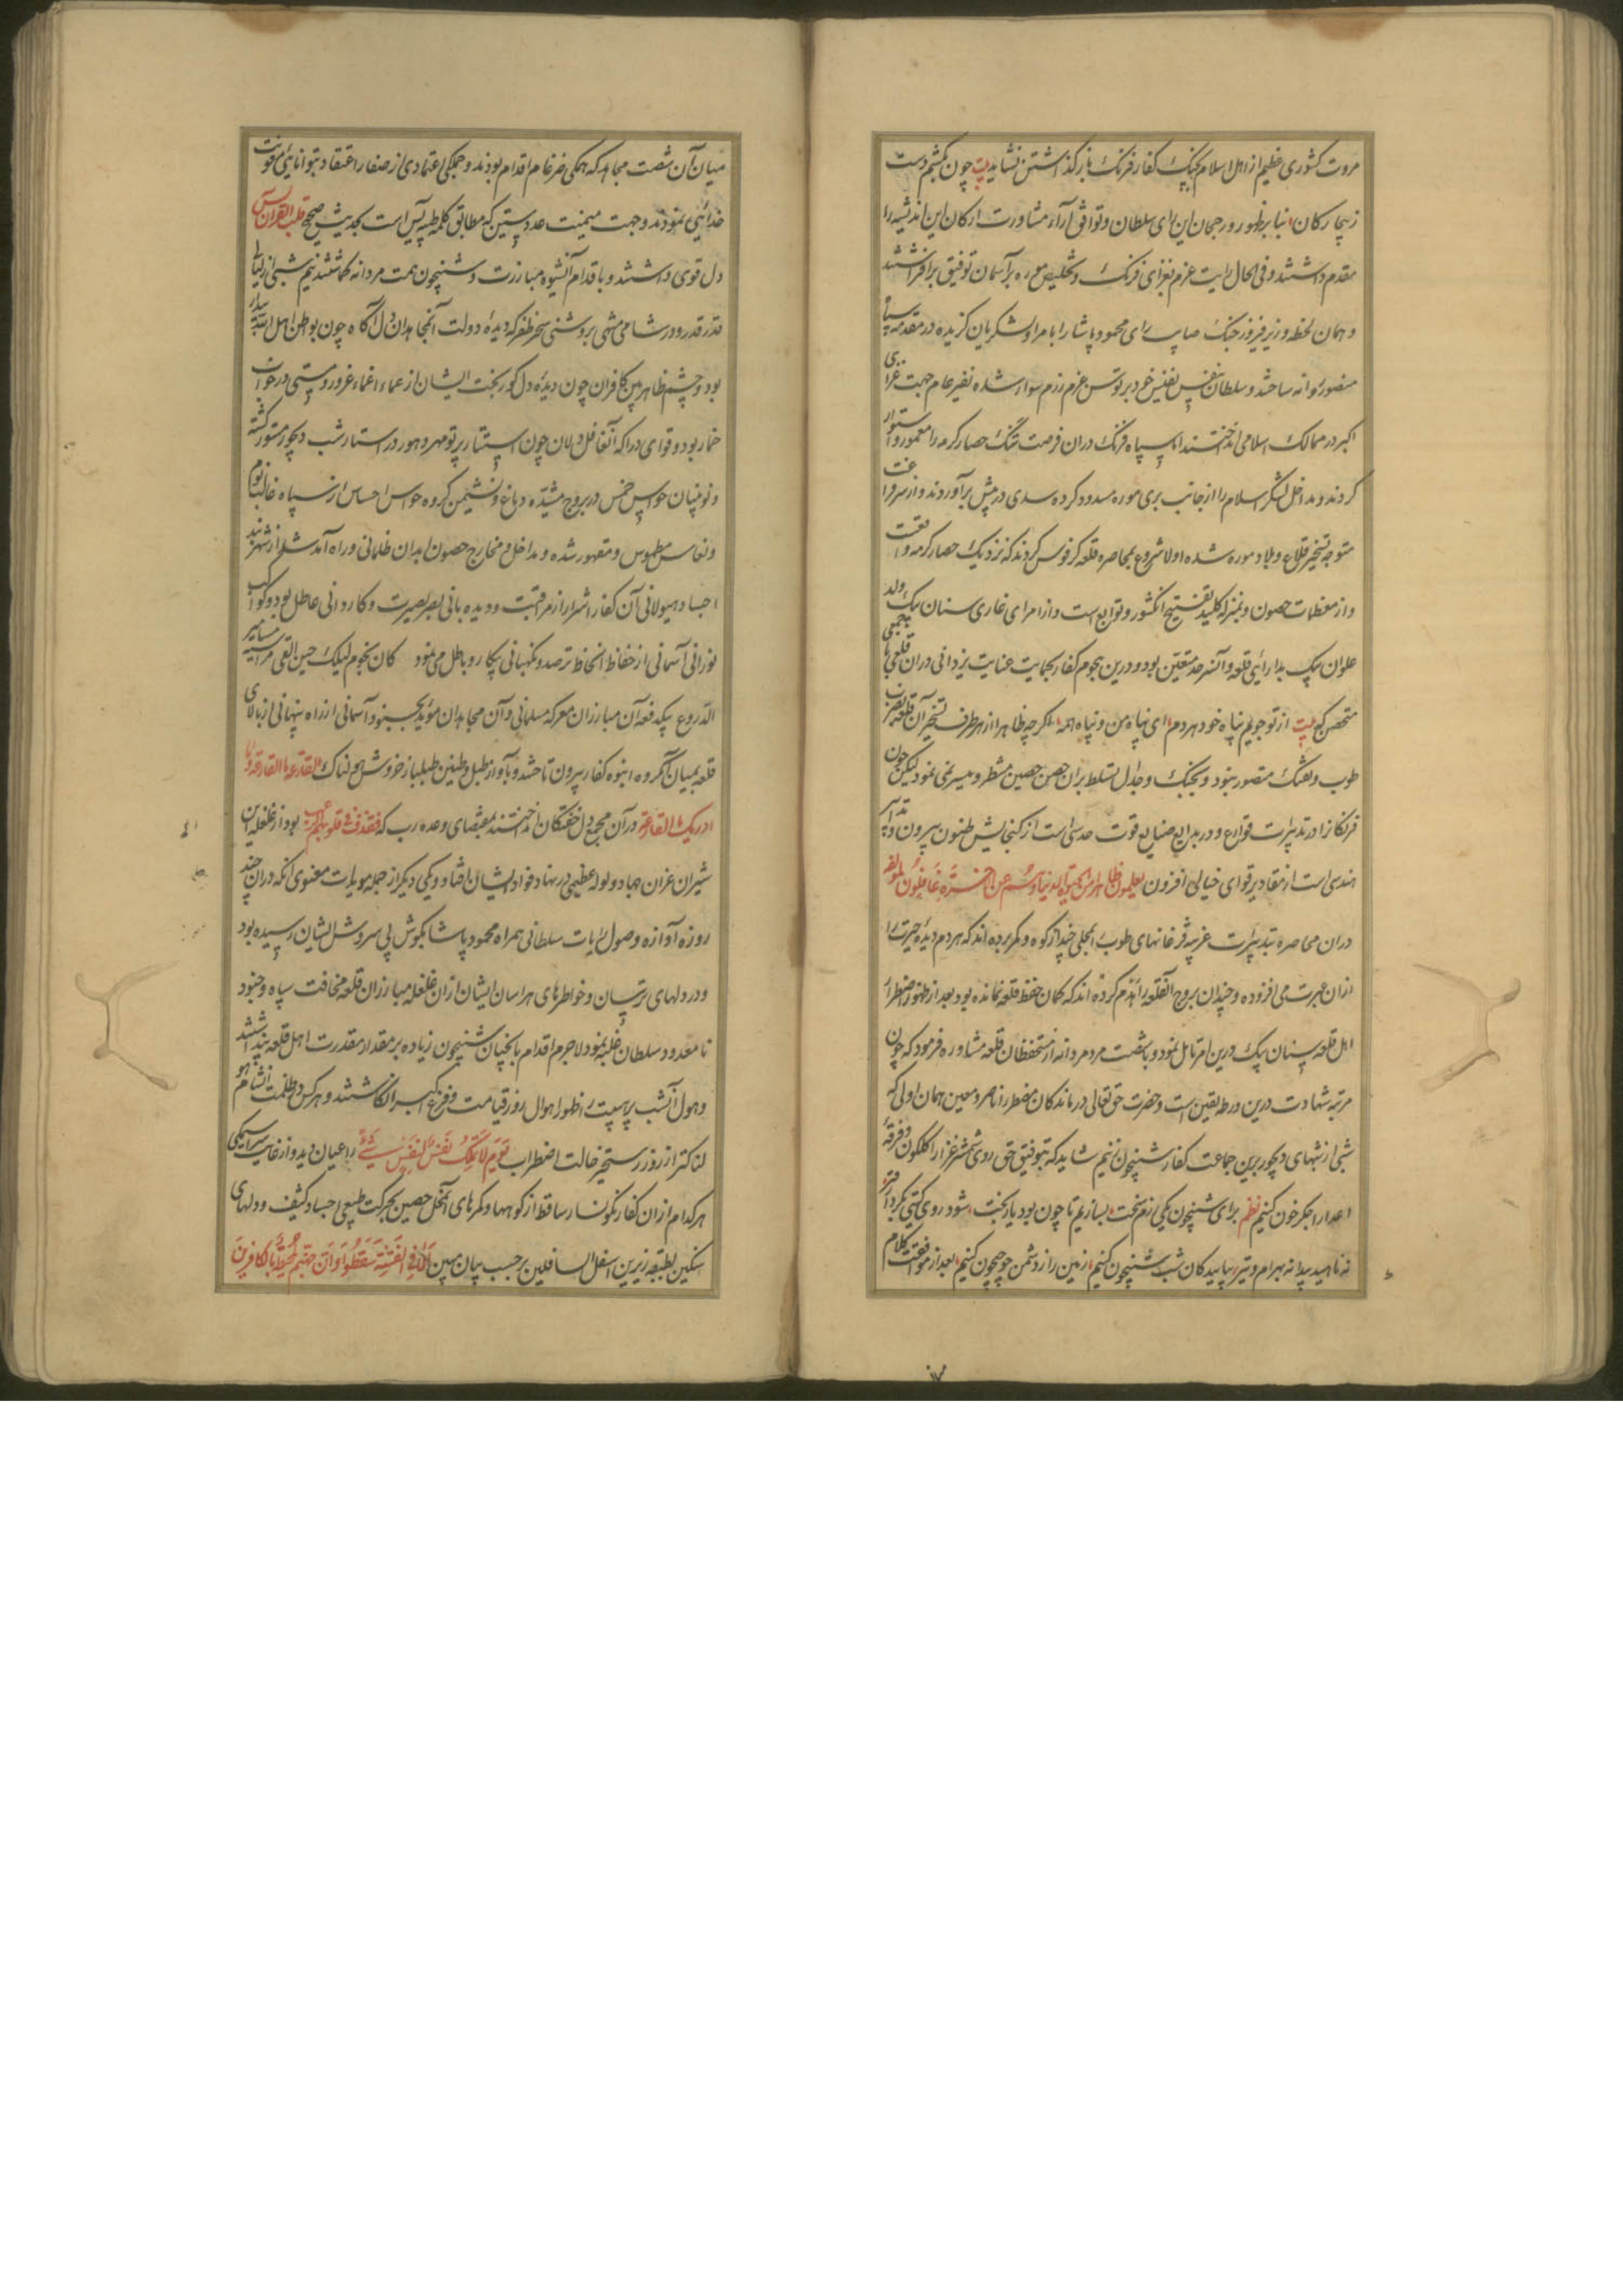 مروت کشوری عظیم از اهل اسلام بجنک کفار فرنک بازگذاشتن نشاید بیت چون بکشیم دست
زیچار کان بنا برظهور و رجحان این رای سلطان و توافق آراء مشاورت ارکان این اندیشه را
مقدم داشتند و فی الحال رایت عزم بغزای فرنک و تخلیص موره بر آسمان توفیق برافراشتند
و همان لحظه وزیر فیروز جنک صایب رای محمود پاشا را با امرا و لشکریان کزیده در مقدمه سپاه
منصور روانه ساختند و سلطان بنفس نفیس خود بر توسن عزم رزم سوار شده نفیر عام جهت غزای
اکبر در ممالک اسلامی انداختند اما سپاه فرنک دران فرصت تنک حصار کرمه را معمور و استوار
کردند و مداخل لشکر اسلام را از جانب بری موره مسدود کرده سدی در پیش برآوردند و از سر فراغت
متوجه تسخیر قلاع و بلاد موره شده اولا شروع بمحاصره قلعه کرفوس کردند که نزدیک حصار کرمه واقعست
و از معظمات حصون و بمنزله کلید تفتیح انکشور و توابع است و از امرای غازی سنان بیک ولد
علوان بیک بدارائی قلعه و آنسرحد متعین بود و درین هجوم کفار بحمایت عنایت یزدانی دران قلعه با جمعی
متحصن کو بیت از تو جویم پناه خود هردم ای پناه من و پناه همه اکرچه ظاهرا از هر طرف تسخیر آن قلعه بضرب
طوب و تفنک متصور نبود و بجنک و جدال تسلط بران حصن حصین منتظر و میسر نمی نمود لیکن چون
فرنکانرا در تدبیرات قوارع و در بدایع صنایع قوت حدسی است از کنجایش ظنون بیرون و تدابیر
هندسی است از مقادیر قوای خیالی افزون یعلمون ظاهرا من الحیوة الدنیا وهم عن الاخرة هم غافلون لمولفه
دران محاصره تدبیرات غریبه و قزغانهای طوب را بمحلی چند از کوه و کمر برده اند که هر دم دیده حیرت را
ازان عبرت می افزوده و چندان بروج آنقلعه را هدم کرده اند که کمان حفظ قلعه نمانده بود بعد از ظهور اضطرار
اهل قلعه سنان بیک درین امر تامل نمود و با شصت مرد مردانه از مستحفظان قلعه مشاوره فرمود که چون
مرتبه شهادت درین ورطه یقین است و حضرت حق تعالی درماندکان مضطر را ناصر و معین همان اولی که
شبی از شبهای دیجور برین جماعت کفار شبیخون بزنیم شاید که بتوفیق حق روی شمشیر غزا را کلکون و فرقه
اعدا را جکر خون کنیم نظم برای شبیخون یکی رزم سخت بسازیم تا چون بود یار بخت شود روی کتی بکرد
نه ناهید پیدا نه بهرام و تیر بیایید کان شب شبیخون کنیم زمین را ز دشمن چو جیحون کنیم بعد از موافقت کلام
میان آن شصت مجاهد که همکی ضرغام اقدام بودند و جملکی اعتمادی از صفار اعتقاد بتوانایی و قوت
خدائی نمودند و جهت میمنت عدد ستین که مطابق کلمه طیبه یس است بحدیث صحیح قلب القرآن یس
دل قوی داشتند و باقدام آنشیوه مبارزت و شبیخون همت مردانه کماشتند نیم شبی از لیالی
قدر قدر و در شامی مشی بروشنی سحر ظفر که دیده دولت آنمجاهدان دل آکاه چون بواطن اهل الله بیدار
بود و چشم ظاهربین کافران چون دیده دل کور بخت ایشان از عماء اغماء غرور و مستی در خواب
خمار بود و قوای دراکه آنغافل دلان چون استتار پرتو مهر و هور در استار شب دیجور مستور کشته
و نوبتیان حواس خمس در بروج مشیده دماغ و نشیمن کروه حواس احساس از سپاه غالب نوم
و نعاس مطموس و مقهور شده و مداخل و مخارج حصون ابدان ظلمانی و راه آمد شد از شهربند
اجساد هیولانی آن کفار اشرار از مراقبت و دیده بانی بصر بصیرت و کاردانی عاطل بود و کواکب
نورانی آسمانی از حفاظ انحفاظ ترصد و نکهبانی بیکار و باطل می نمود کان نجوم لیلک حین القی مراسیه مسامیر
الدروع بیکدفعه آن مبارزان معرکه مسلمانی و آن مجاهدان مؤید بجنود آسمانی از راه پنهانی از بالای
قلعه بمیان آنکروه انبوه کفار بیرون تاختند و باواز طبل و طنین طبلباز خروش هولناک القارعة ما القارعة و ما
ادریک ما القارعة در آن مجمع دل خفتکان انداختند بمقتضای وعده رب که فقذف فی قلوبهم الرعب بود از غلغله این
شیران غران جهاد و لوله عظیمی در نهاد فواد ایشان افتاد و یکی دیکر از جمله مویدات معنوی آنکه دران چند
روزه آوازه وصول رایات سلطانی همراه محمود پاشا بکوش بی سروش ایشان رسیده بود
و در دلهای ترسان و خاطرهای هراسان ایشان ازان غلغله مبارزان قلعه مخافت سپاه و جنود
نامعدود سلطان غلبه نمود لاجرم اقدام بانچنان شبیخون زیاده بر مقدار مقدرت اهل قلعه پنداشتند
و هول آنشب پر هیبت را ظهور اهوال روز قیامت و فزع اکبر انکاشتند و هرکس در ظلمت آنشام هو
لناکتر از روز رستخیز حالت اضطراب یوم لا تملک نفس لنفس شیئا را عیان دید و از غایت سراسیمکی
هر کدام ازان کفار نکونسار ساقط از کوهها و کمرهای آنمحل حصین بحرکت طبیعی اجساد کثیف و دلهای
سنکین بطبقه زیرین اسفل السافلین بر حسب بیان مبین الا فی الفتنة سقطوا وان جهنم لمحیطة بالکافرین